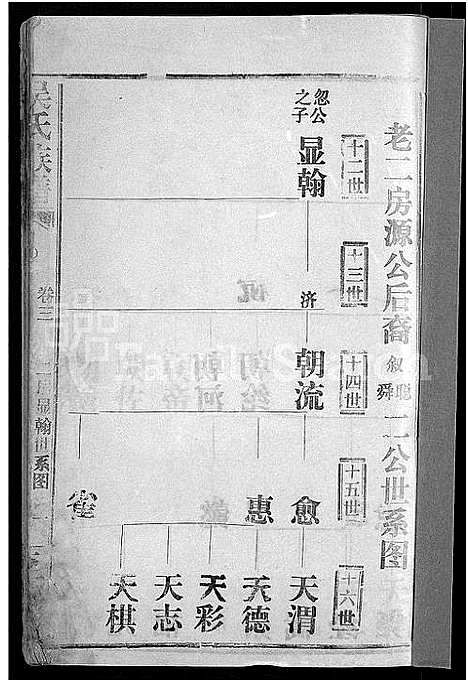 老二房源公后裔叙聪舜二公世系图
十二世
忽公之子
显翰
十三世
济
十四世
朝流
十五世
愈
惠
崔
十六世
天渭
天德
天彩
天志
天棋
吴氏族谱
卷三
二房显翰世系图